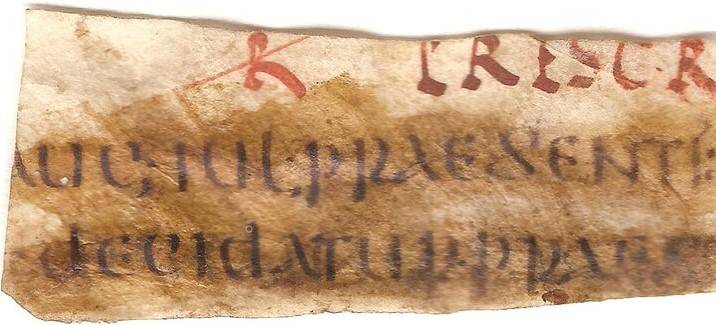 K PRESC·R
AUG·IUL·PRAESENTE
decidATUR·PRAES